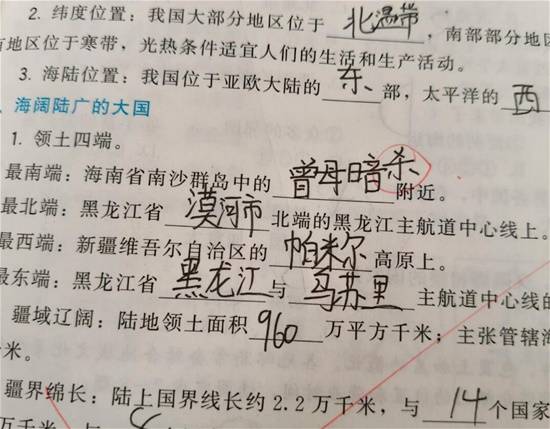 2. 纬度位置：我国大部分地区位于 北温带，南部部分地区
地区位于寒带，光热条件适宜人们的生活和生产活动。
3. 海陆位置：我国位于亚欧大陆的 东 部，太平洋的 西
海阔陆广的大国
1. 领土四端。
最南端：海南省南沙群岛中的 曾母暗杀 附近。
最北端：黑龙江省 漠河市 北端的黑龙江主航道中心线上。
最西端：新疆维吾尔自治区的 帕米尔 高原上。
最东端：黑龙江省 黑龙江 与 乌苏里 主航道中心线的
疆域辽阔：陆地领土面积 960 万平方千米；主张管辖海
米。
疆界绵长：陆上国界线长约 2.2 万千米，与 14 个国家
万千米，与